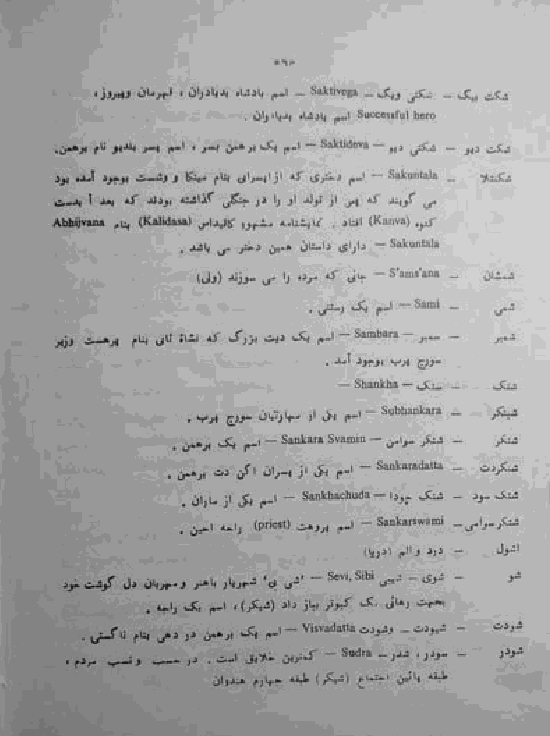 شکت بیگ — شکتی ویگ — Saktivega — اسم پادشاه بدیادران ، قهرمان وپیروز ،
Successful hero اسم پادشاه بدیادران .
شکت دیو — شکتی دیو — Saktideva — اسم یک برهمن پسر ، اسم پسر بلدیو نام برهمن.
شکنتلا — Sakuntala — اسم دختری که از اپسرای مینکا و وشست بوجود آمده بود
می گویند که پس از تولد او را در جنگلی گذاشته بودند که بعد آ بدست
کنوه (Kanva) افتاد . نمایشنامه مشهور کالیداس (Kalidasa) بنام Abhijvana
Sakuntala — دارای داستان همین دختر می باشد .
شمشان — S'ams'ana — جائی که مرده را می سوزند (ولی)
شمی — Sami — اسم یک وستی .
شمبر — سمبر — Sambara — اسم یک دیت بزرگ که نشاة ثانی بنام پرهست وزیر
سورج پرب بوجود آمد .
شنک — سنک — Shankha —
شبنکر — Subhankara — اسم یکی از مهارتیان سورج پرب .
شنکر — شنکر سوامی — Sankara Svamin — اسم یک برهمن .
شنکردت — Sankaradatta — اسم یکی از پسران اگن دت برهمن .
شنک سود — شنک چودا — Sankhachuda — اسم یکی از ماران .
شنکر سوامی — Sankarswami — اسم پروهت (priest) راجه اجین .
اشول — درد و الم (دریا)
شو — شوی — شیبی Sevi, Sibi — 'شی بی' شهریار باهنر و مهربان دل گوشت خود
بجهت رهائی یک کبوتر بیاز داد (شیکر) ، اسم یک راجه .
شودت — شیودت — وشودت Visvadatta — اسم یک برهمن در دهی بنام ناگستی .
شودر — سودر ، شدر — Sudra — کمترین خلایق است . در حسب و نسب مردم ،
طبقه پائین اجتماع (شیکر) طبقه چهارم هندوان